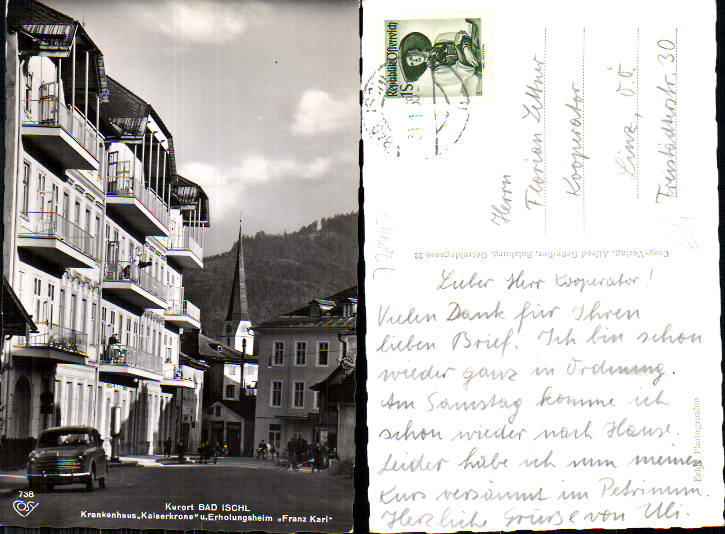 738
COSY
Kurort BAD ISCHL
Krankenhaus „Kaiserkrone" u. Erholungsheim „Franz Karl"
Republik Österreich
1 S
Herrn
Florian
Kooperator
Linz, OÖ
30
Cosy-Verlag, Alfred Gründler, Salzburg, Getreidegasse 22
Lieber Herr Kooperator!
Vielen Dank für Ihren
lieben Brief. Ich bin schon
wieder ganz in Ordnung.
Am Samstag komme ich
schon wieder nach Hause.
Leider habe ich nun meinen
Kurs versäumt im Petrinum.
Herzliche Grüße von Uli.
Echte Photographie